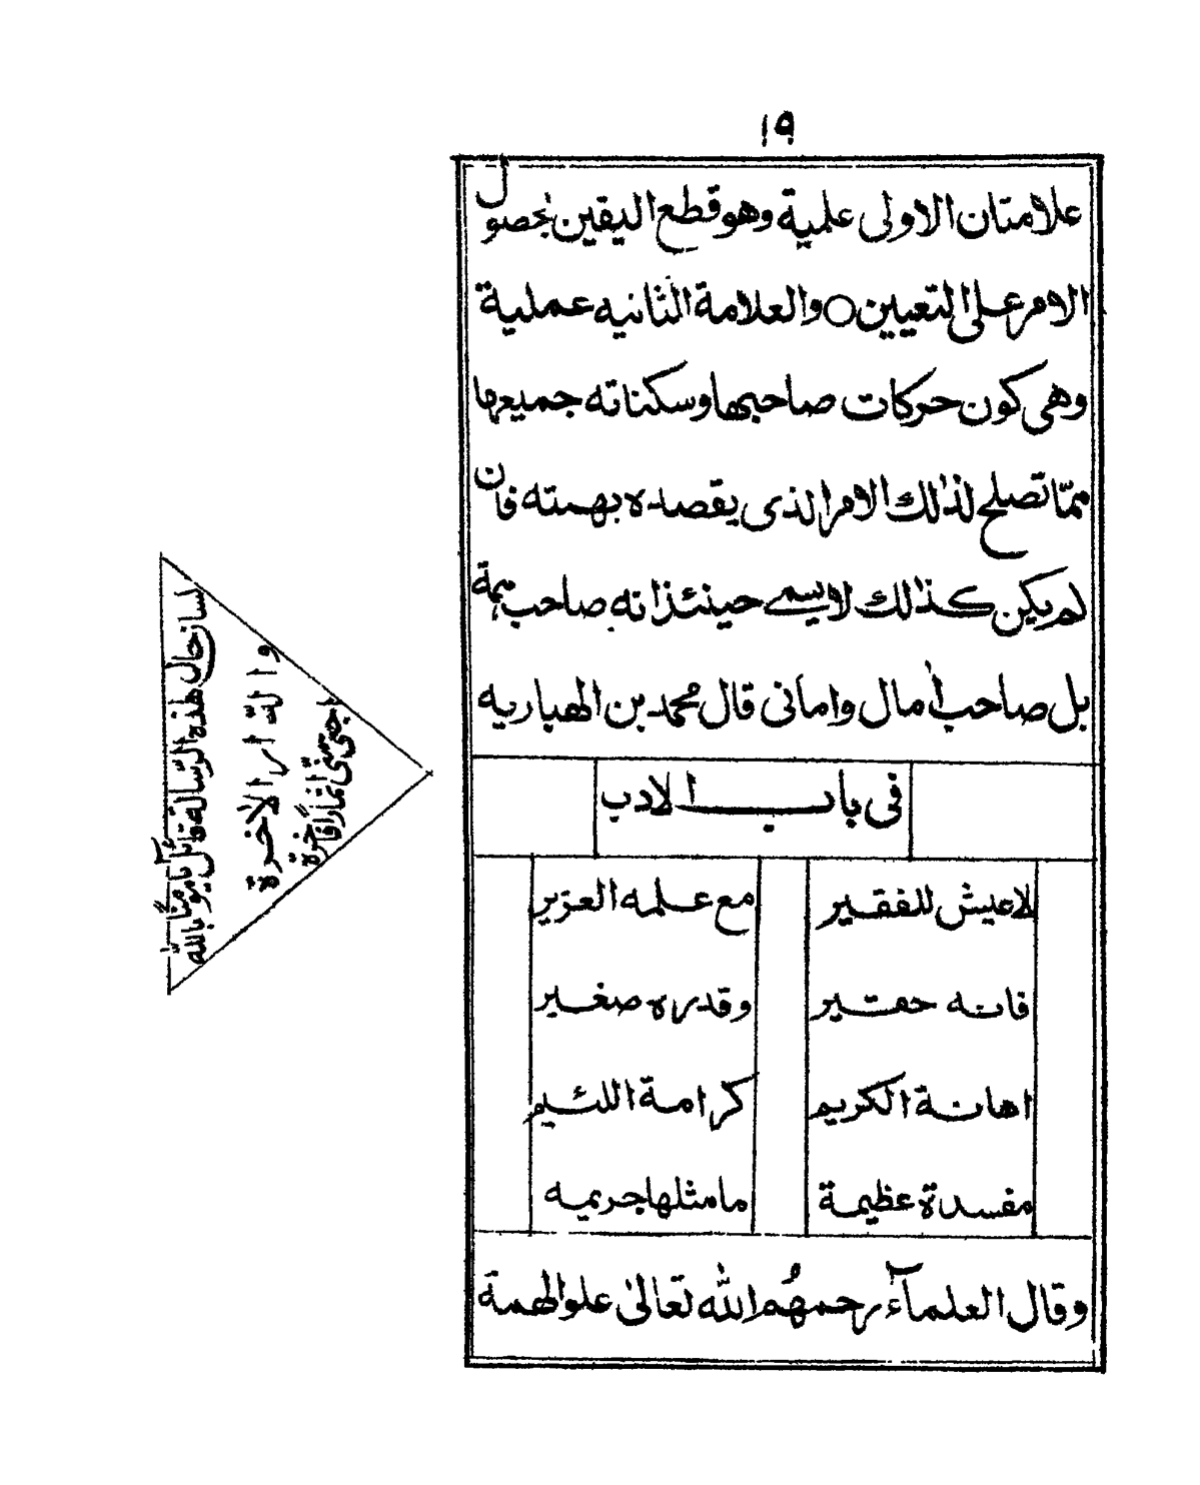 ١٩
علامتان الاولى علمية وهو قطع اليقين بحصول
الامر على التعيين ○ والعلامة الثانيه عملية
وهى كون حركات صاحبها وسكناته جميعها
ممّا تصلح لذٰلك الامر الذى يقصده بهمته فان
لم يكن كذالك لا يسمى حينئذ انه صاحب همة
بل صاحب اٰمال وامانى قال محمد بن الهباريه
فى باب الادب
لاعيش للفقير مع علمه العزيز
فانه حقير وقدره صغير
اهانة الكريم كرامة اللئيم
مفسدة عظيمة ما مثلها جريمه
وقال العلمآء رحمهُم الله تعالىٰ علو الهمة
لسان حال هٰذه الرّسالة قائل يا مؤمنًا بالله
والدّار الاٰخرة
اجتنى منّى اثمارًا فاخرة